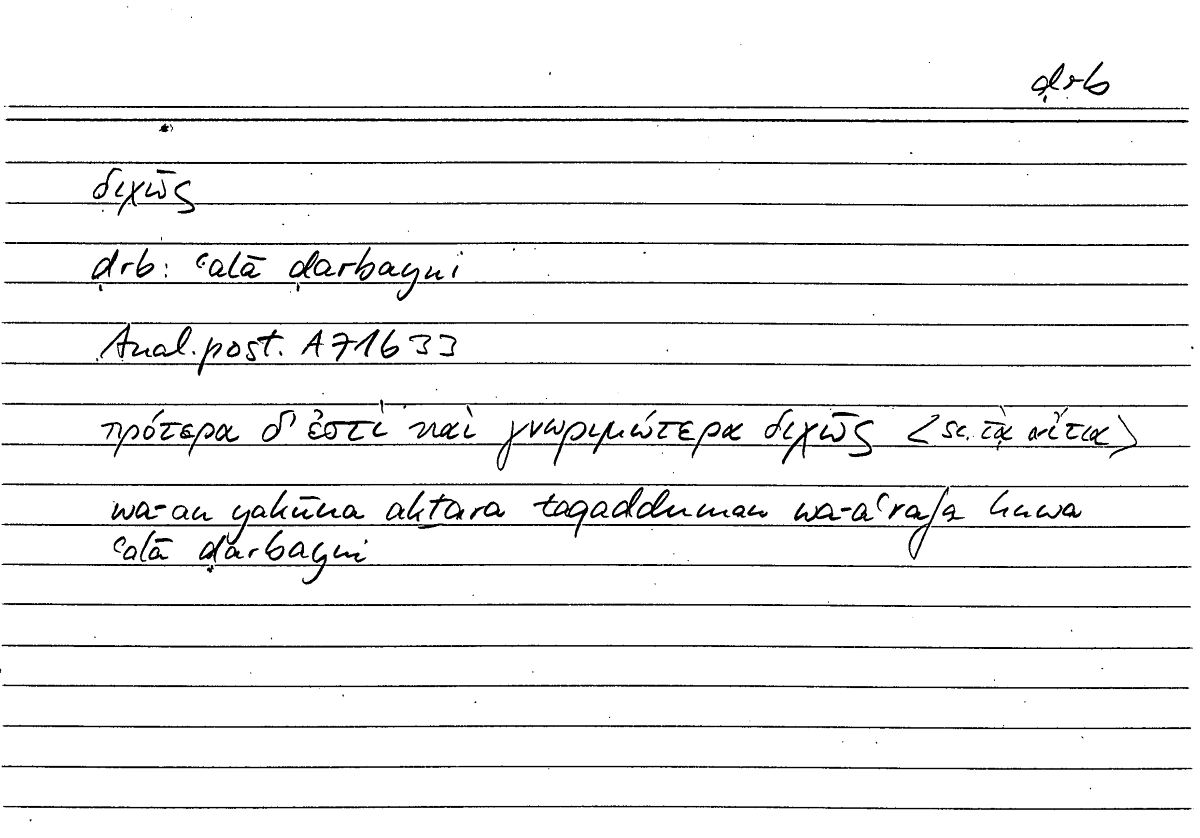 ḍrb
διχῶς
ḍrb: ʿalā ḍarbayni
Anal.post. A71b33
πρότερα δ' ἐστὶ καὶ γνωριμώτερα διχῶς <sc. τὰ αἴτια>
wa-an yakūna akṯara taqadduman wa-aʿrafa huwa
ʿalā ḍarbayni